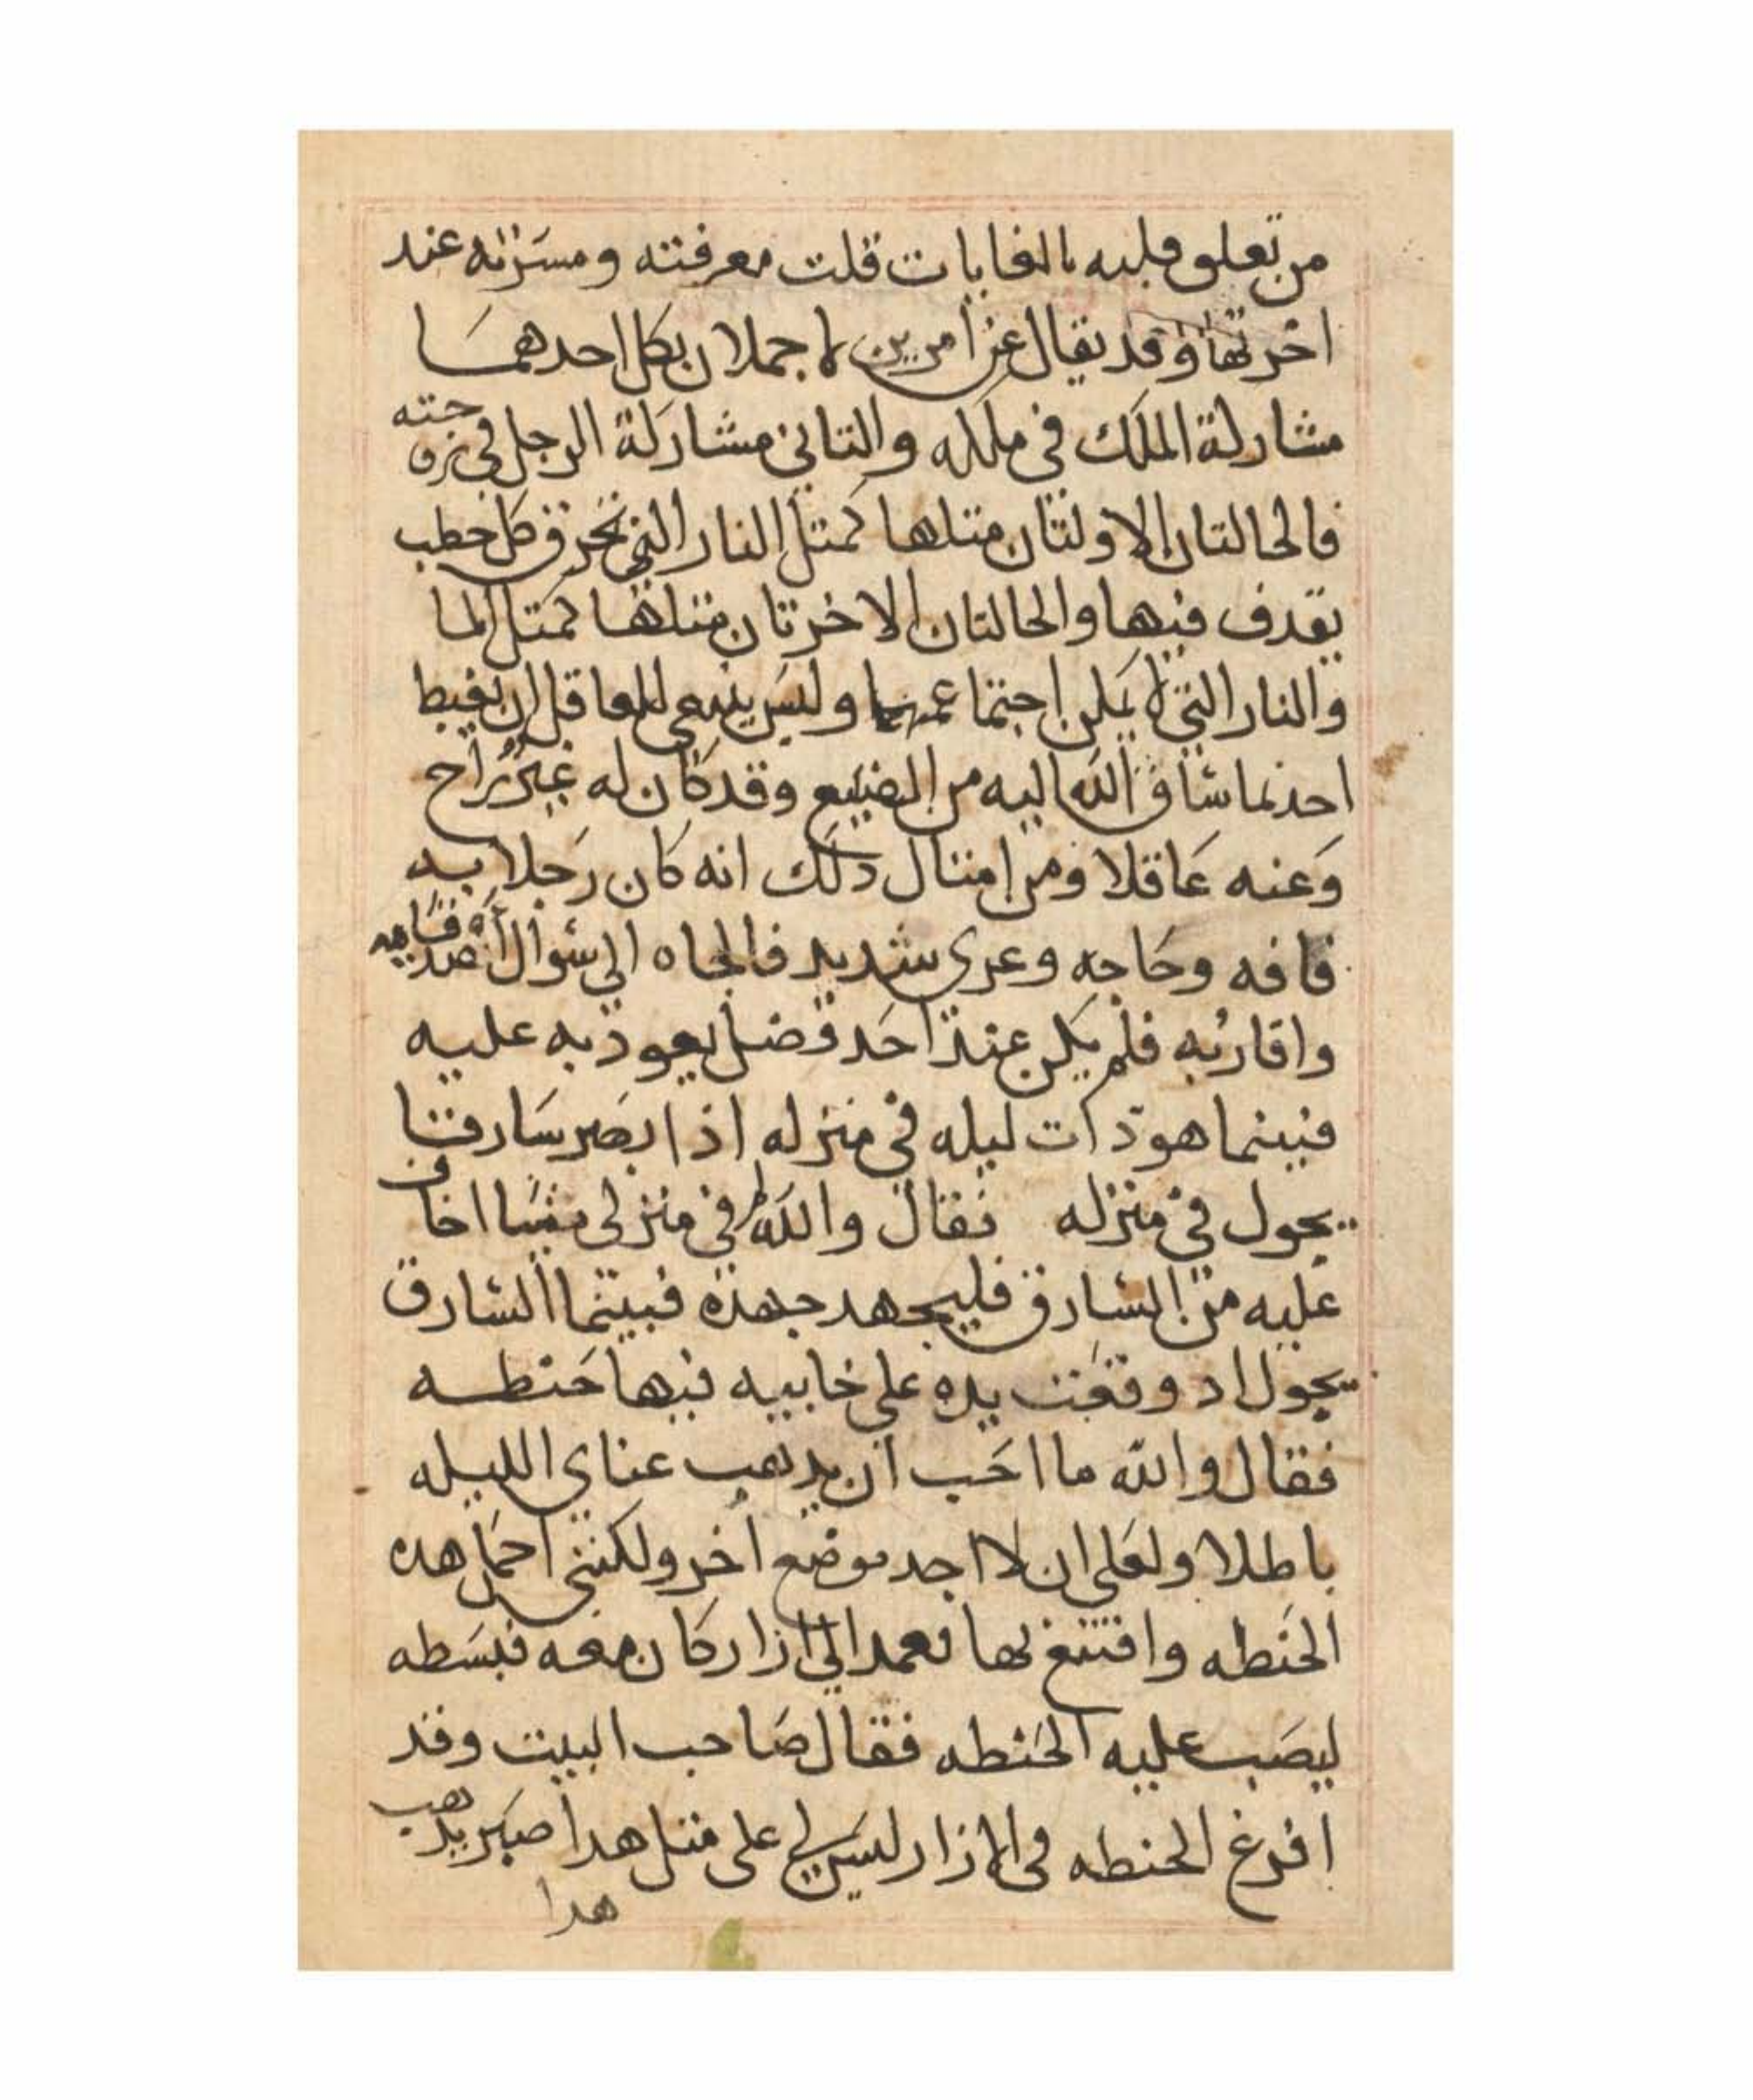 من تعلق قلبه بالغايات قلت معرفته ومسرته عند
اخرتها وقد يقال عن امرين لا يجملان بكل احدهما
مشاركة الملك في ملكه والثاني مشاركة الرجل في زوجته
فالحالتان الاولتان مثلها كمثل النار التي تحرق كل حطب
يقدف فيها والحالتان الاخرتان مثلها كمثل الما
والنار التي لا يمكن اجتماعهما وليس ينبغي للعاقل ان يغبط
احد بما ساق الله اليه من الضيع وقد كان له غير راح
وعنه عاقلا ومن امثال دلك انه كان رجلا به
فاقه وحاجه وعري شديد فالجاه الي سوال اصدقايه
واقاربه فلم يكن عند احد فضل يعود به عليه
فبينما هو ذات ليله في منزله اذ ابصر سارقا
يجول في منزله فقال والله ما في منزلي شيا اخاف
عليه من السارق فليجهد جهده فبينما السارق
يجول اد وقعت يده على خابيه فيها حنطه
فقال والله ما احب ان يدهب عناي الليله
باطلا ولعلي ان لا اجد موضع اخر ولكنني احمل هده
الحنطه واقتنع بها فعمد الي ازار كان معه فبسطه
ليصب عليه الحنطه فقال صاحب البيت وقد
افرغ الحنطه في الازار ليس لي على مثل هدا صبر يدهب
هدا